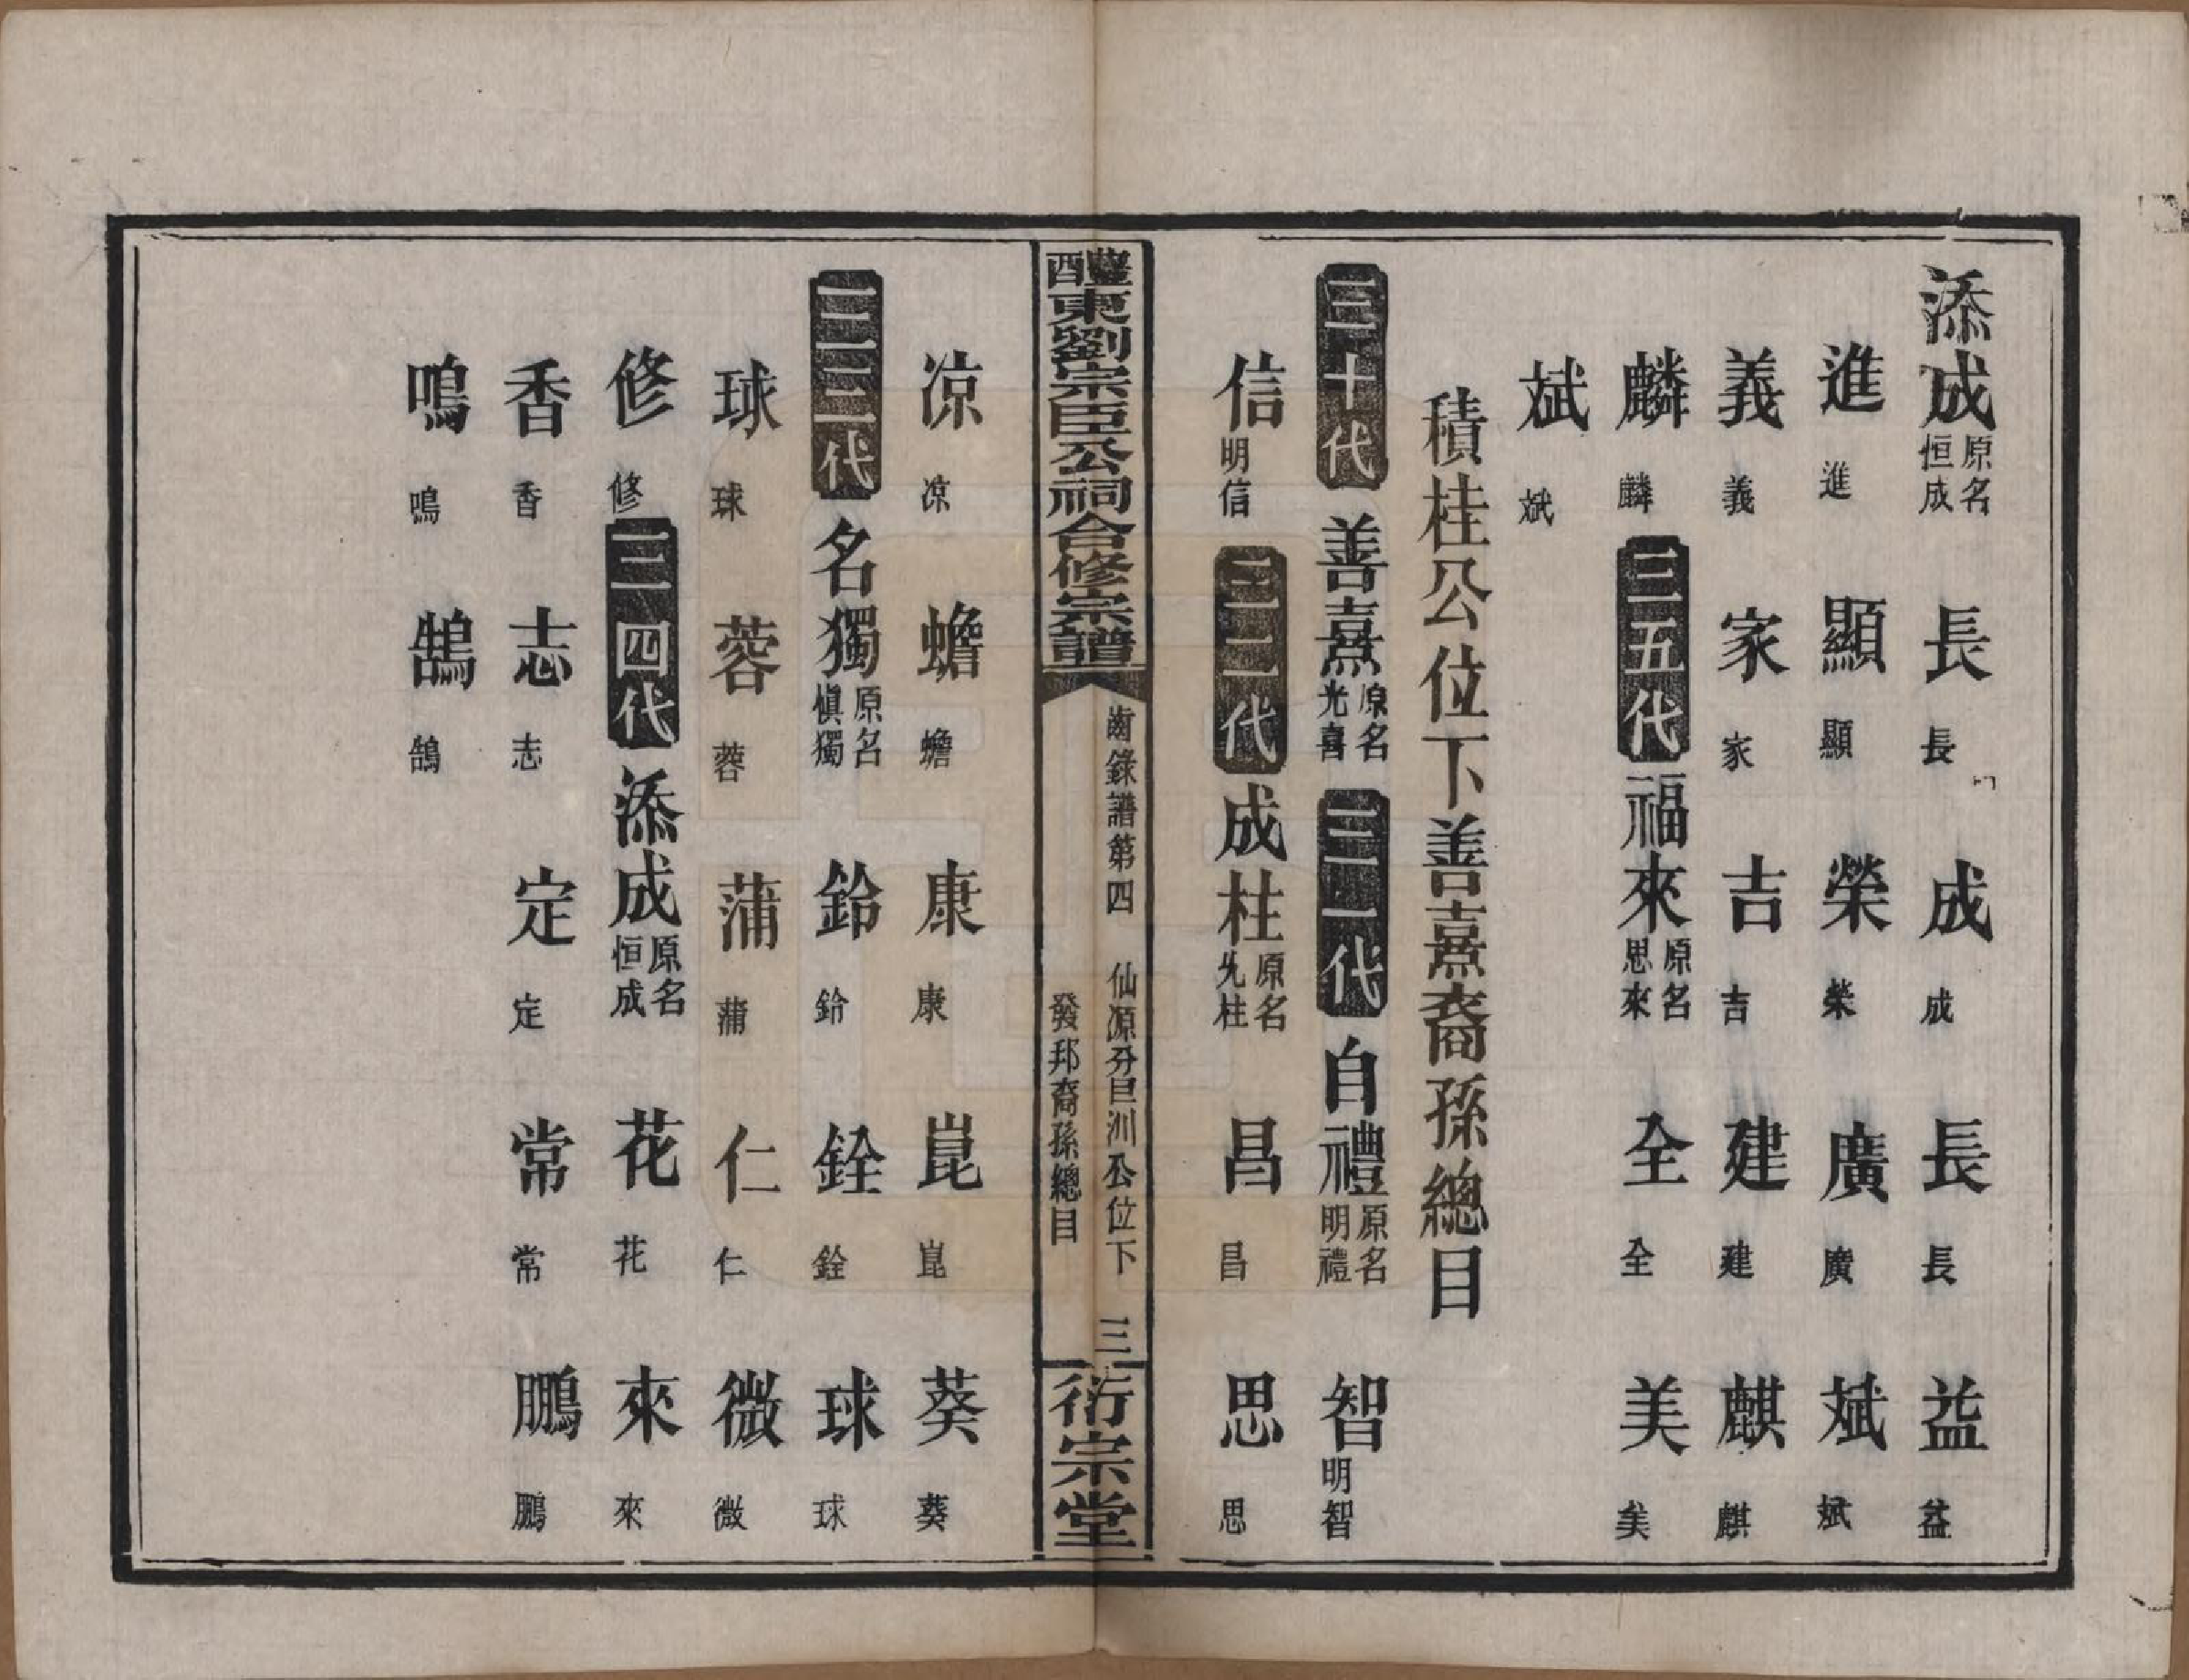 添成原名恒成 長長 成成 長長 益益
進進 顯顯 榮榮 廣廣 斌斌
義義 家家 吉吉 建建 麒麒
麟麟 三五代 福來原名思來 全全 美美
斌斌
積桂公位下善熹裔孫總目
三十代 善熹原名光喜 三一代 自禮原名明禮 智明智
信明信 三二代 成柱原名先柱 昌昌 思思
醴東劉宗臣公祠合修宗譜 齒錄譜第四 仙源分巨洲公位下發邦裔孫總目 三 衍宗堂
凉凉 蟾蟾 康康 崑崑 葵葵
三三代 名獨原名慎獨 鈴鈴 銓銓 球球
球球 蓉蓉 蒲蒲 仁仁 微微
修修 三四代 添成原名恒成 花花 來來
香香 志志 定定 常常 鵬鵬
鳴鳴 鵠鵠